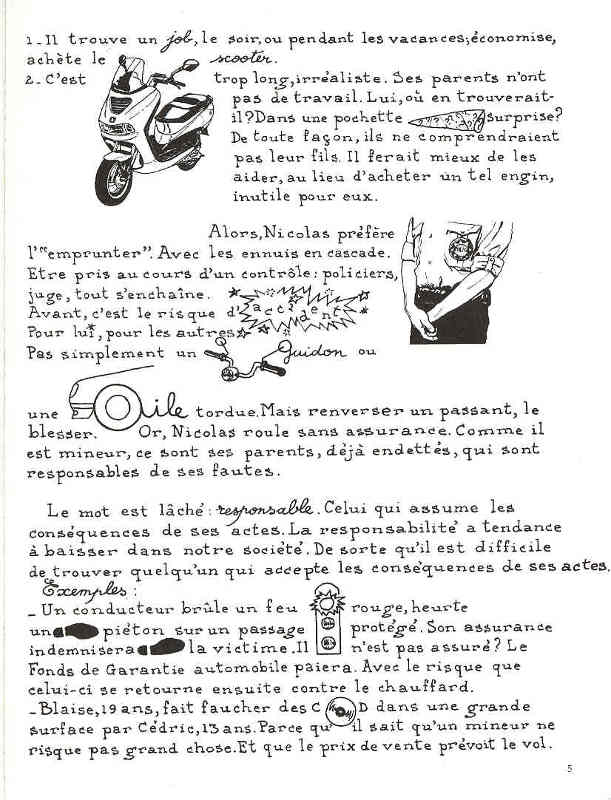 1_Il trouve un job, le soir, ou pendant les vacances; économise,
achète le scooter.
2_C'est trop long, irréaliste. Ses parents n'ont
pas de travail. Lui, où en trouverait-
il? Dans une pochette surprise?
De toute façon, ils ne comprendraient
pas leur fils. Il ferait mieux de les
aider, au lieu d'acheter un tel engin,
inutile pour eux.
Alors, Nicolas préfère
l'"emprunter". Avec les ennuis en cascade.
Etre pris au cours d'un contrôle: policiers,
juge, tout s'enchaîne.
Avant, c'est le risque d'accident
Pour lui, pour les autres
Pas simplement un Guidon ou
une Oile tordue. Mais renverser un passant, le
blesser. Or, Nicolas roule sans assurance. Comme il
est mineur, ce sont ses parents, déjà endettés, qui sont
responsables de ses fautes.
Le mot est lâché: responsable. Celui qui assume les
conséquences de ses actes. La responsabilité a tendance
à baisser dans notre société. De sorte qu'il est difficile
de trouver quelqu'un qui accepte les conséquences de ses actes.
Exemples:
_ Un conducteur brûle un feu rouge, heurte
un piéton sur un passage protégé. Son assurance
indemnisera la victime. Il n'est pas assuré? Le
Fonds de Garantie automobile paiera. Avec le risque que
celui-ci se retourne ensuite contre le chauffard.
_Blaise, 19 ans, fait faucher des CD dans une grande
surface par Cédric, 13 ans. Parce qu'il sait qu'un mineur ne
risque pas grand chose. Et que le prix de vente prévoit le vol.
5